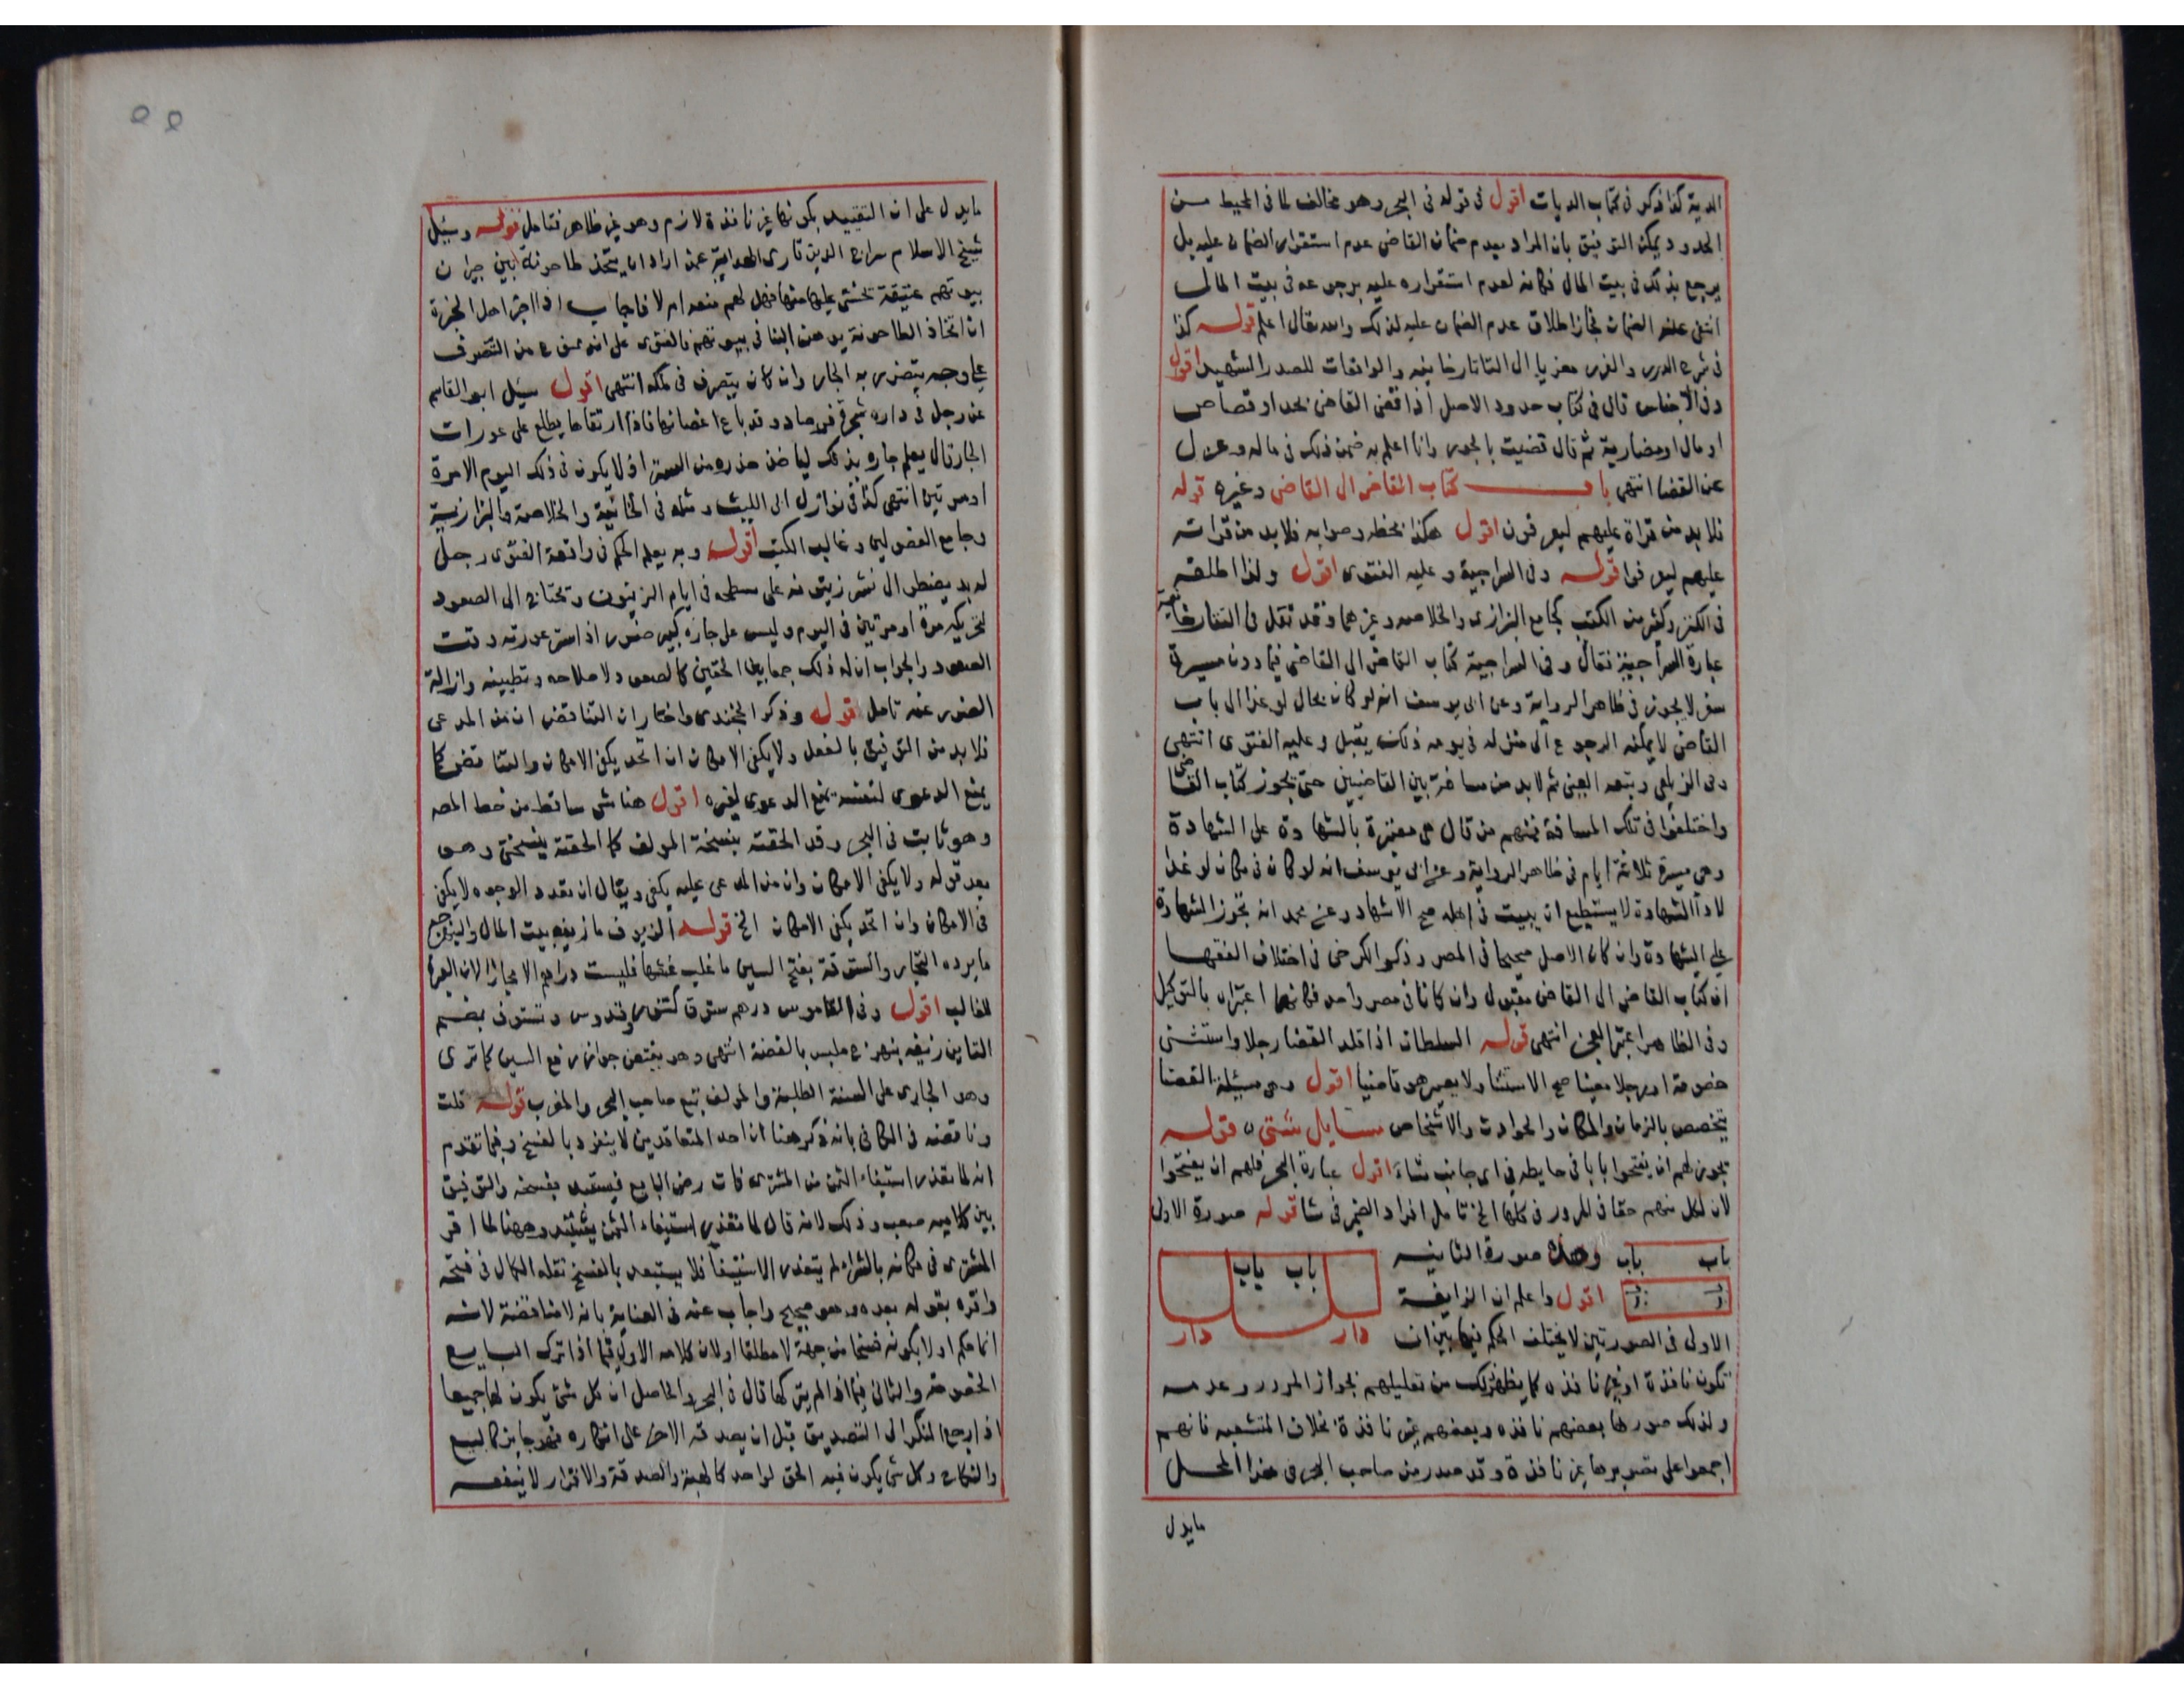 الدية كذا ذكر في كتاب الديات اقول في قوله في البحر وهو مخالف لما في المحيط من
الحدود ويمكن التوفيق بان المراد بعدم ضمان القاضي عدم استقرار الضمان عليه بل
يرجع بذلك في بيت المال فكانه لعدم استقراره عليه برجوعه في بيت المال
انتفى عنه الضمان فجاز اطلاق عدم الضمان عليه لذلك والله تعالى اعلم قوله كذا
في شرح الدرر والغرر معزيا الى التاتارخانيه والواقعات للصدر الشهيد اقول
وفي الاجناس قال في كتاب حدود الاصل اذا قضى القاضي بحد او قصاص
او مال او مضاربة ثم قال قضيت بالجور وانا اعلم به ضمن ذلك في ماله وعزل
عن القضا انتهى باب كتاب القاضي الى القاضي وغيره قوله
فلا بد من قراة عليهم ليعرفون اقول هكذا بخطه وصوابه فلا بد من قراته
عليهم ليعرفوا قوله وفي السراجية وعليه الفتوى اقول ولذا اطلقه
في الكنز وكثير من الكتب كجامع البزازى والخلاصه وغيرهما وقد نقل في التتارخانية
عبارة السراجية فقال وفي السراجية كتاب القاضي الى القاضي فيما دون مسيرة
سفر لا يجوز في ظاهر الرواية وعن ابى يوسف انه لو كان بحال لو غدا الى باب
القاضي لا يمكنه الرجوع الى منزله في يومه ذلك يقبل وعليه الفتوى انتهى
وفي الزيلعي وتبعه العيني ثم لا بد من مسافة بين القاضيين حتى يجوز كتاب القاضي
واختلفوا في تلك المسافة فمنهم من قال هي معتبرة بالشهادة على الشهادة
وهي مسيرة ثلاثة ايام في ظاهر الرواية وعن ابى يوسف انه لو كان في مكان لو غدا
لاداء الشهادة لا يستطيع ان يبيت في اهله صح الاشهاد وعن محمد انه تجوز الشهادة
على الشهادة وان كان الاصل صحيحا في المصر وذكر الكرخي في اختلاف الفقها
ان كتاب القاضي الى القاضي مقبول وان كانا في مصر واحد فكانهما اعتبراه بالتوكيل
وفي الظاهر اعتبر العجز انتهى قوله السلطان اذا قلد القضا رجلا واستثنى
خصومة او رجلا معينا صح الاستثنا ولا يصير هو قاضيا اقول وهي مسئلة القضا
يتخصص بالزمان والمكان والحوادث والاشخاص مسايل شتى قوله
يجوز لهم ان يفتحوا بابا في حايطه في اي جانب شاء اقول عبارة البحر فلهم ان يفتحوا
لان لكل منهم حقا في المرور في كلها الخ تامل افراد الضمير في شا قوله صورة الاولى
باب باب وهذه صورة الثانيه باب باب
اقول واعلم ان الزايغة
دار دار دار دار
الاولى في الصورتين لا يختلف الحكم فيها بين ان
تكون نافذة او غير نافذه كما يظهر لك من تعليلهم بجواز المرور وعدمه
ولذلك صورها بعضهم نافذه وبعضهم غير نافذة بخلاف المتشعبه فانهم
اجمعوا على تصويرها غير نافذة وقد صدر من صاحب البحر في هذا المحل
مايدل
مايدل على ان التقييد بكونها غير نافذة لازم وهو غير ظاهر فتامل قوله وسئل
شيخ الاسلام سراج الدين قارى الهداية عمن اراد ان يتخذ طاحونة بين جيران
بيوتهم عتيقة يخشى عليها منها فهل لهم منعه ام لا فاجاب اذا اخبر اهل الخبرة
ان اتخاذ الطاحونة يوهن البنا في بيوتهم فالفتوى على انه ممنوع من التصرف
على وجه يتضرر به الجار وان كان يتصرف في ملكه انتهى اقول سئل ابو القاسم
عن رجل في داره شجرة فرصاد وقد باع اغصانها فاذا ارتقاها يطلع على عورات
الجار قال يعلم جاره بذلك لياخذ حذره من الستر اذ لا يكون في ذلك اليوم الامرة
او مرتين انتهى كذا في نوازل ابى الليث ومثله في الخانية والخلاصة والبزازية
وجامع الفصولين وغالب الكتب اقول وبه يعلم الحكم في واقعة الفتوى رجل
له بد يضطر الى نشر زيتونه على سطحه في ايام الزيتون وتحتاج الى الصعود
لتحريكه مرة او مرتين في اليوم وليس على جاره كبير ضرر اذا ستر عورته وقت
الصعود والجواب ان له ذلك جمعا بين الحقين كالصعود لاصلاحه وتطيينه وازالة
الضرر عنه تامل قوله وذكر الخجندى واختار ان التناقض ان من المدعى
فلا بد من التوفيق بالفعل ولا يكفي الامكان ان اتحد يكفي الامكان والتناقض كما
يمنع الدعوى لنفسه يمنع الدعوى لغيره اقول هنا شى ساقط من خط المصه
وهو ثابت في البحر وقد الحقته بنسخة المولف كما الحقته بنسختي وهو
بعد قوله ولا يكفي الامكان وان من المدعى عليه يكفي ويقال ان تعدد الوجوه لا يكفي
في الامكان وان اتحد يكفي الامكان الخ قوله الزيوف ما زيفه بيت المال والنبهرج
ما يرده التجار والستوقة بفتح السين ما غلب غشها فليست دراهم الا مجازا لان العبرة
للغالب اقول وفي القاموس درهم ستوق كتنور وقدوس وتستوق بضم
التاين زيف بنهرج ملبس بالفضة انتهى وهو يقتضي جواز رفع السين كما ترى
وهو الجارى على السنة الطلبة والمولف تبع صاحب البحر والمغرب قوله قلت
وناقضه في الكافي بانه ذكر هنا ان احد المتعاقدين لا ينفرد بالفسخ وفيما تقدم
انه لما تعذر استيفاء الثمن من المشترى فات رضى البايع فيستبد بفسخه والتوفيق
بين كلاميه صعب وذلك لانه قال لما تعذر استيفاء الثمن وههنا لما اقر
المشترى في مكانه بالشراء لم يتعذر الاستيفا فلا يستبد بالفسخ نقله الكمال في فتحه
واقره بقوله بعده وهو صحيح واجاب عنه في العناية بانه لا مناقضة لانه
انما حكم اولا بكونه فسخا من جهة لا مطلقا او لان كلامه الاول فيما اذا ترك البايع
الخصومة والثاني فيما اذا لم يترك كما قال في البحر والحاصل ان كل شئ يكون لهما جميعا
اذا رجع المنكر الى التصديق قبل ان يصدقه الاخر على انكاره فهو جايز كالبيع
والنكاح وكل شى يكون فيه الحق لواحد كالهبة والصدقة والاقرار لا ينفعه